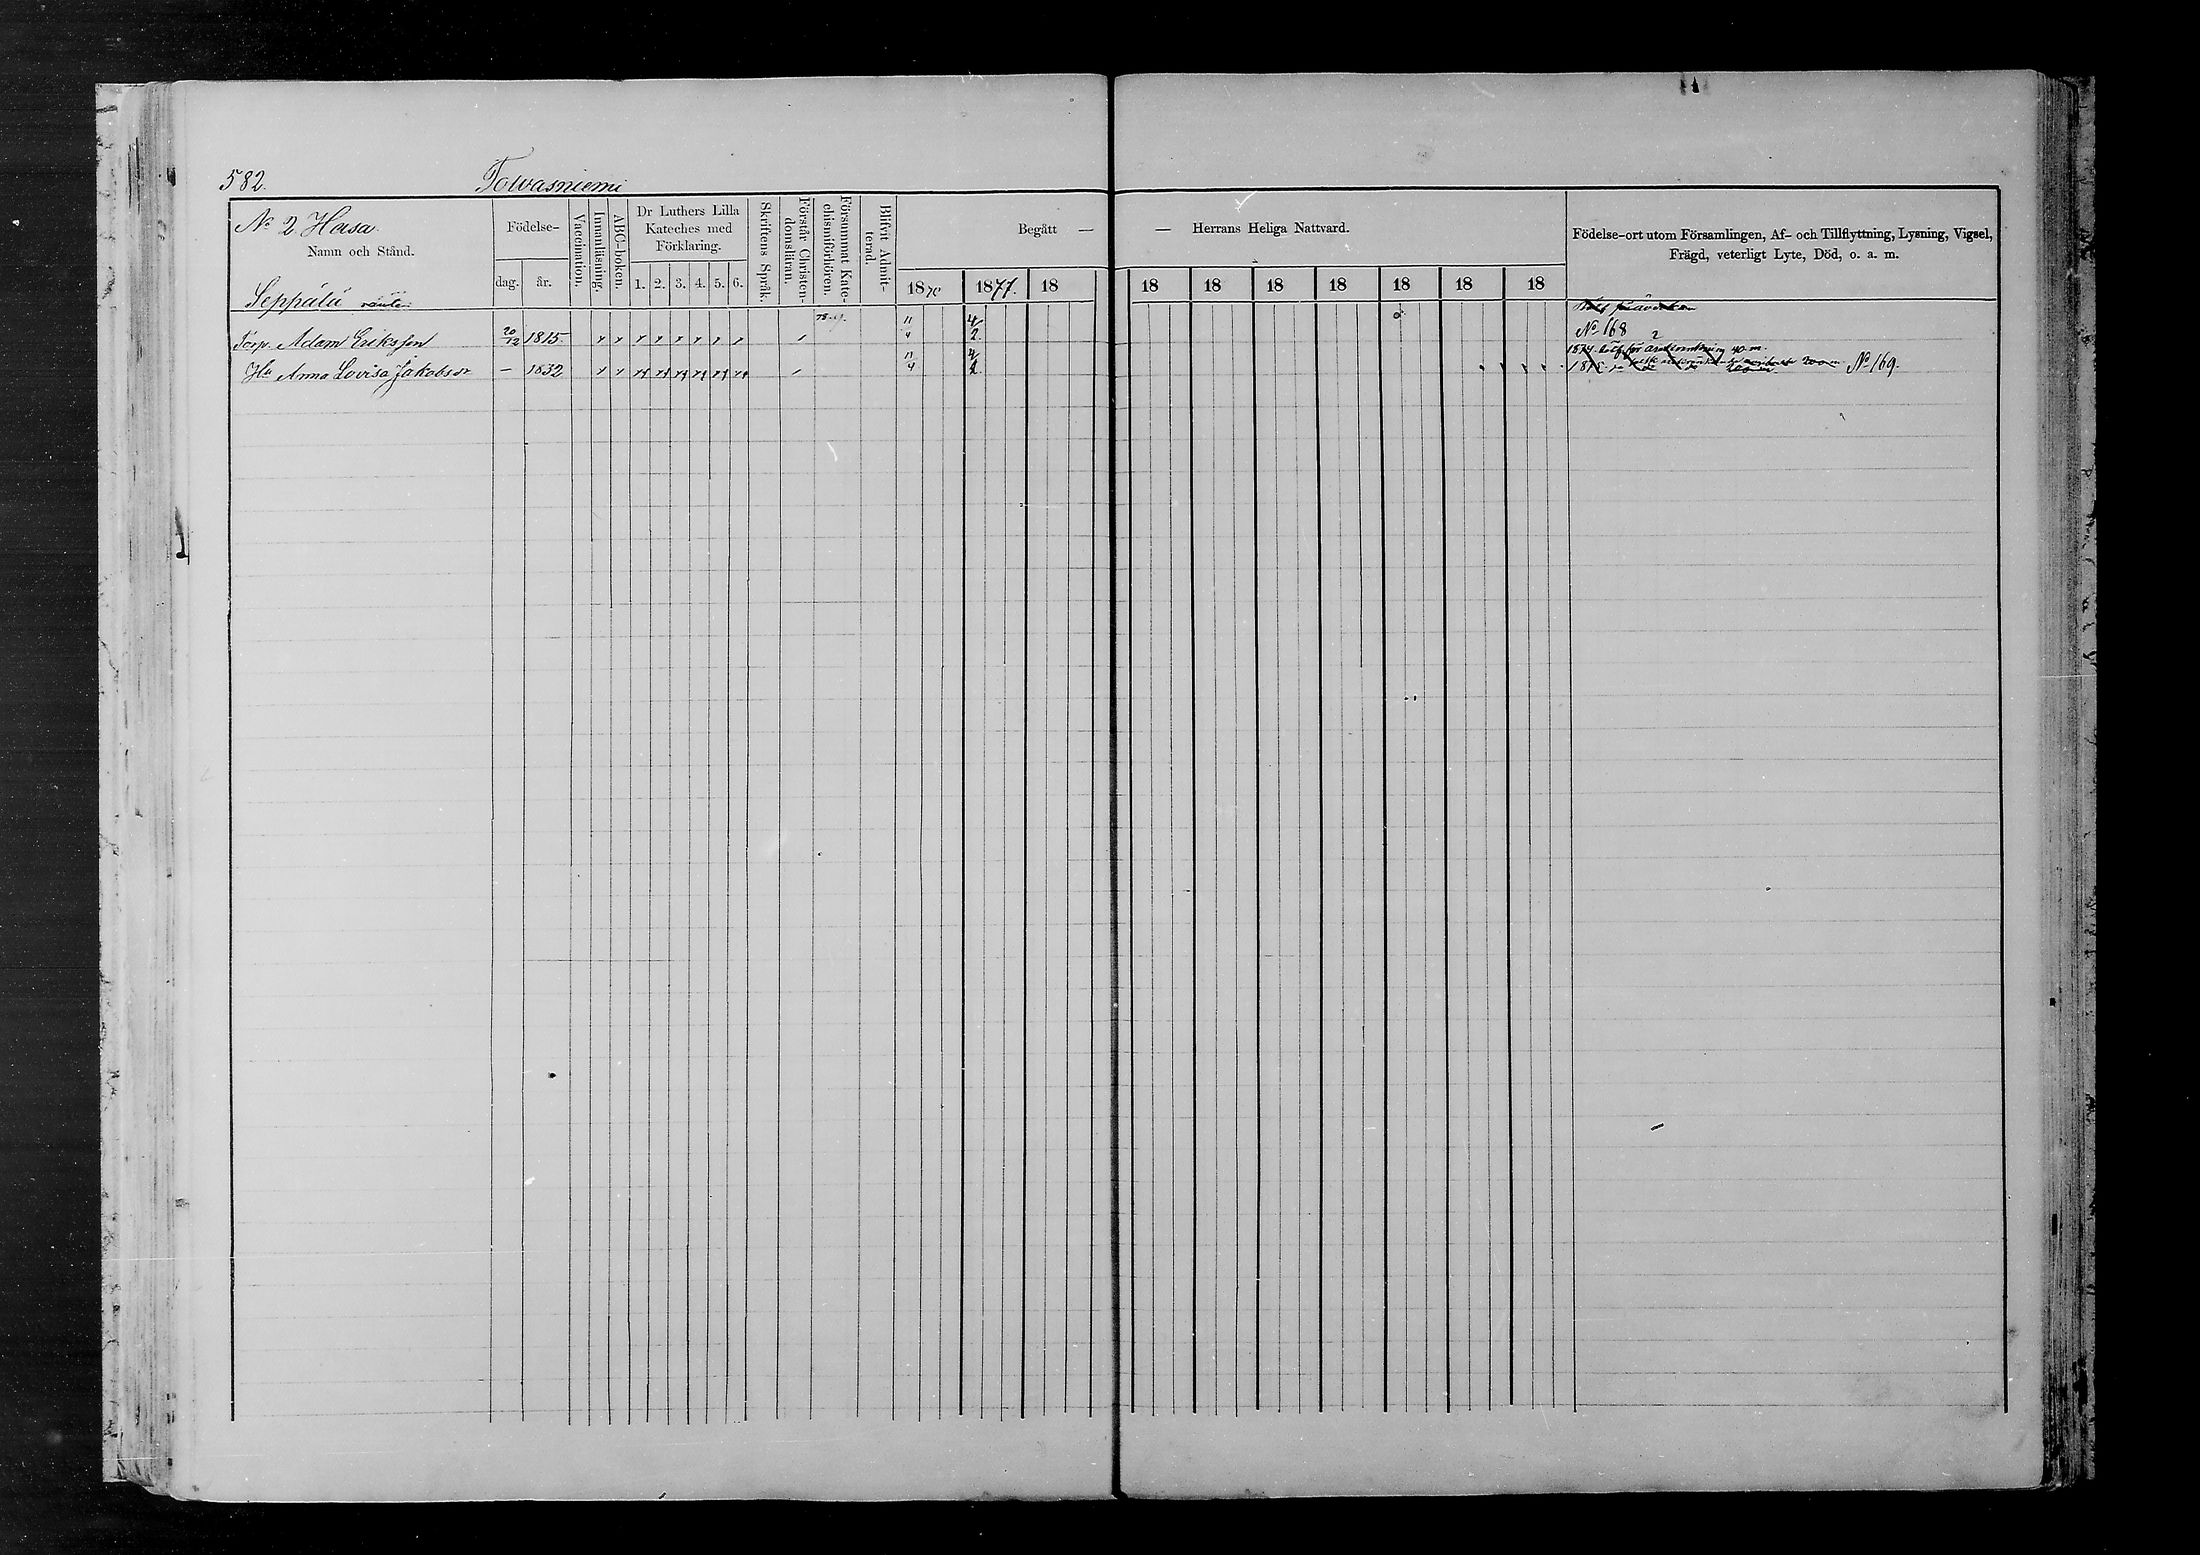 582.
Towasniemi
No 2. Hasa.
Namn och Stånd.
Födelse-
dag.
år.
Vaccination.
Innanläsning.
ABC-boken.
Dr Luthers Lilla
Kateches med
Förklaring.
1. 2. 3. 4. 5. 6.
Skriftens Språk.
Förstår Christen-
domsläran.
Försummat Kate-
chismiförhören.
Blifvit Admit-
terad.
Begått —
— Herrans Heliga Nattvard.
1876 1877. 18
18 18 18 18 18 18 18
Födelse-ort utom Församlingen, Af- och Tillflyttning, Lysning, Vigsel,
Frägd, veterligt Lyte, Död, o. a. m.
Seppälä
Torp. Adam Eriksson 20/12 1815. 11/4 4/2
No 168
Hu Anna Lovisa Jakobsdr — 1832 11/4 4/2
No 169.